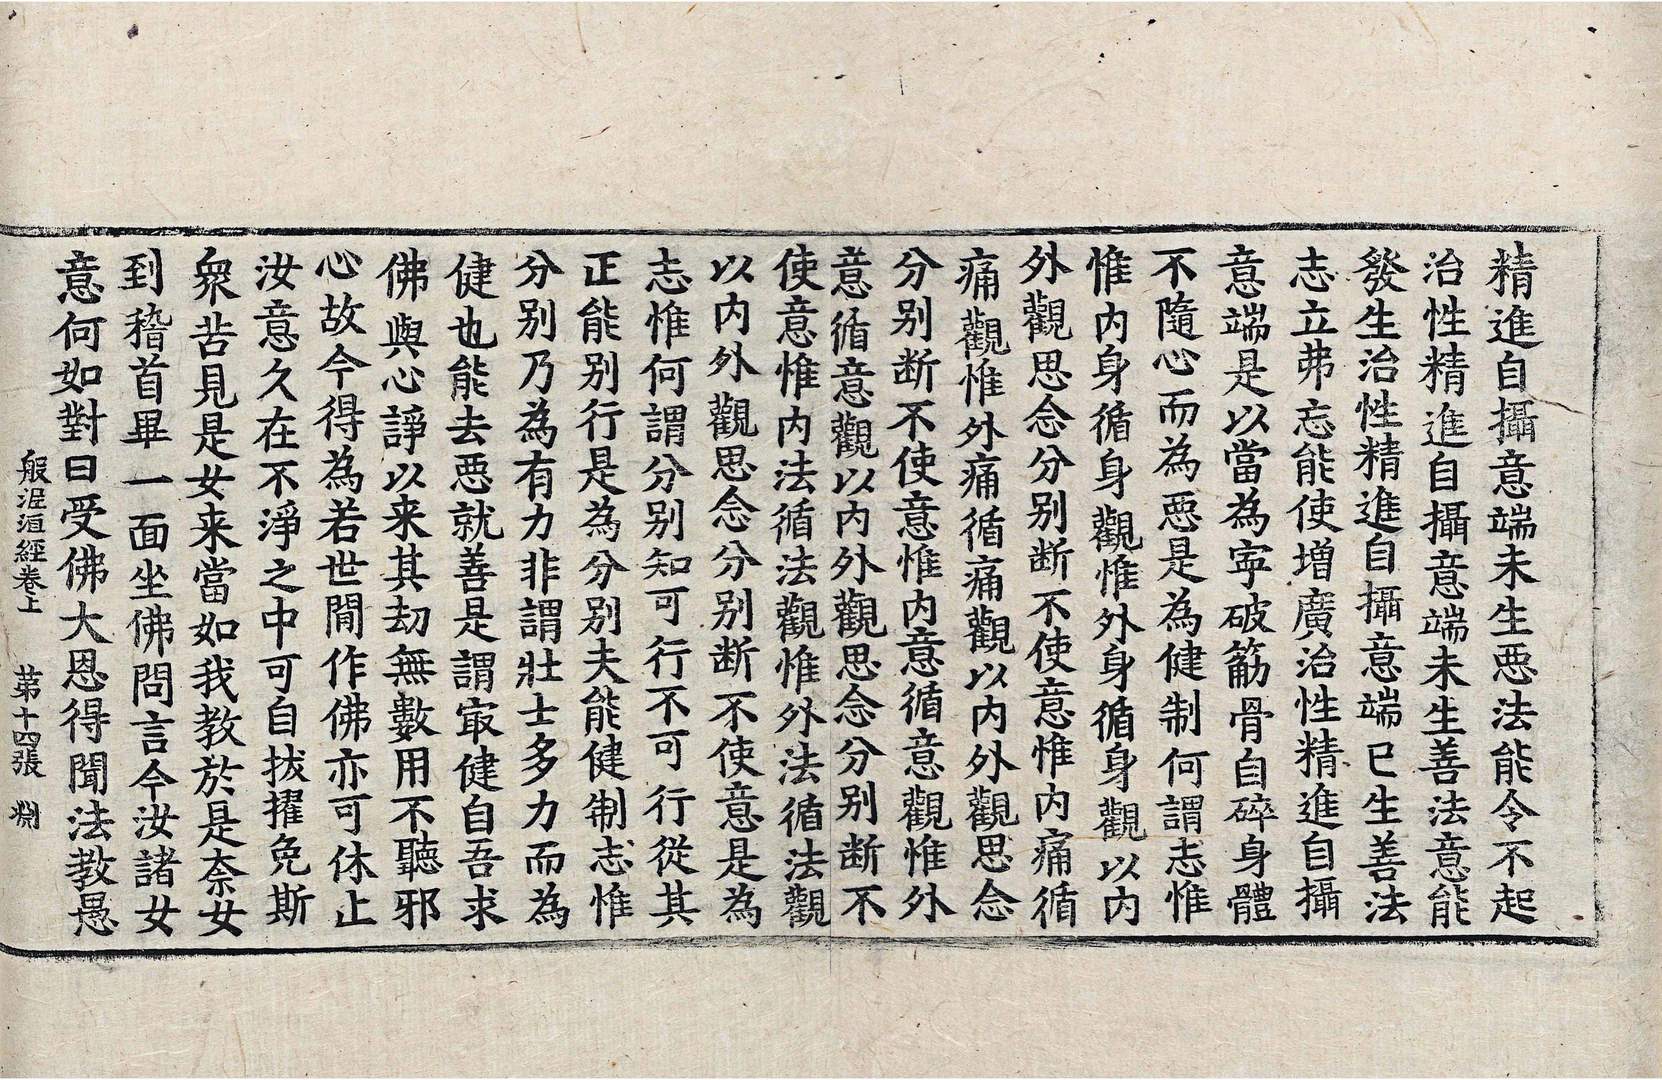 精進自攝意端未生惡法能令不起
治性精進自攝意端未生善法意能
發生治性精進自攝意端已生善法
志立弗忘能使增廣治性精進自攝
意端是以當為寧破筋骨自碎身體
不隨心而為惡是為健制何謂志惟
惟內身循身觀惟外身循身觀以內
外觀思念分別断不使意惟內痛循
痛觀惟外痛循痛觀以內外觀思念
分別断不使意惟內意循意觀惟外
意循意觀以內外觀思念分別断不
使意惟內法循法觀惟外法循法觀
以內外觀思念分別断不使意是為
志惟何謂分別知可行不可行從其
正能別行是為分別夫能健制志惟
分別乃為有力非謂壯士多力而為
健也能去惡就善是謂㝡健自吾求
佛與心諍以来其劫無數用不聽邪
心故今得為若世間作佛亦可休止
汝意久在不淨之中可自拔擢免斯
衆苦見是女来當如我教於是柰女
到稽首畢一面坐佛問言今汝諸女
意何如對曰受佛大恩得聞法教愚
般泥洹經卷上 苐十四張 淵